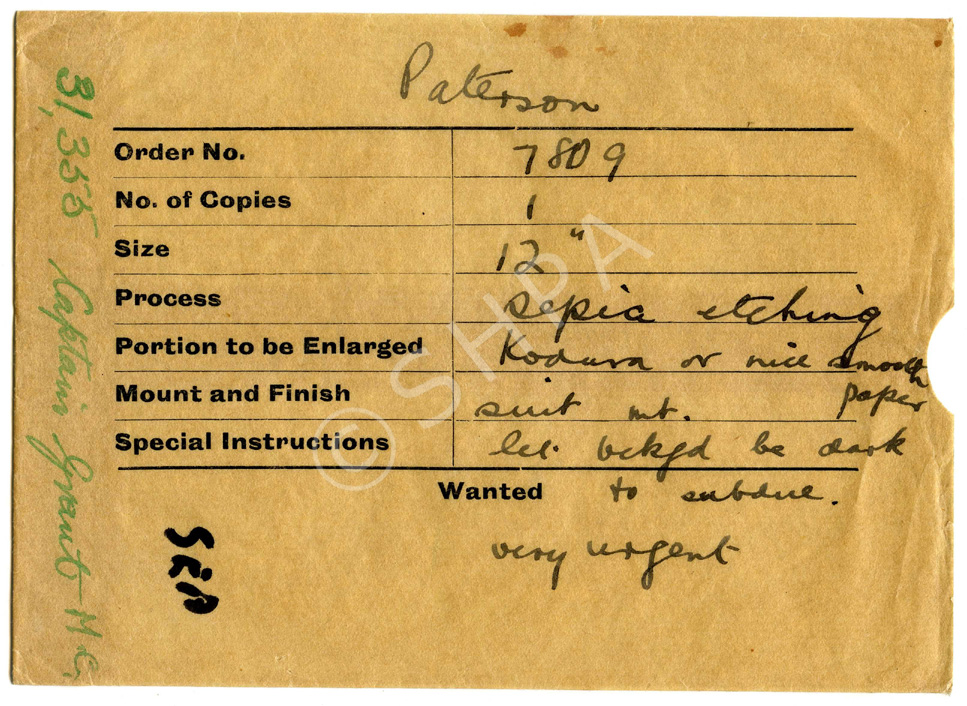 Paterson
Order No. 7809
No. of Copies 1
Size 12"
Process Sepia etching
Portion to be Enlarged Kodura or nice smooth paper
Mount and Finish suit mt.
Special Instructions let bckgd be dark
Wanted to subdue.
very urgent
31,355 Captain Grant M.C.
Sep
© SHPA